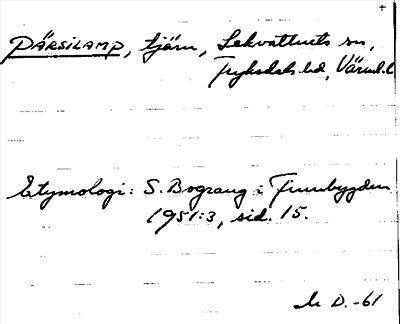 PÄRSILAMP, tjärn, Lekvattnets sn,
Fryksdals hd, Värml.l.
Etymologi: S. Bograng i Finnbygden
1951:3, sid. 15.
D. -61